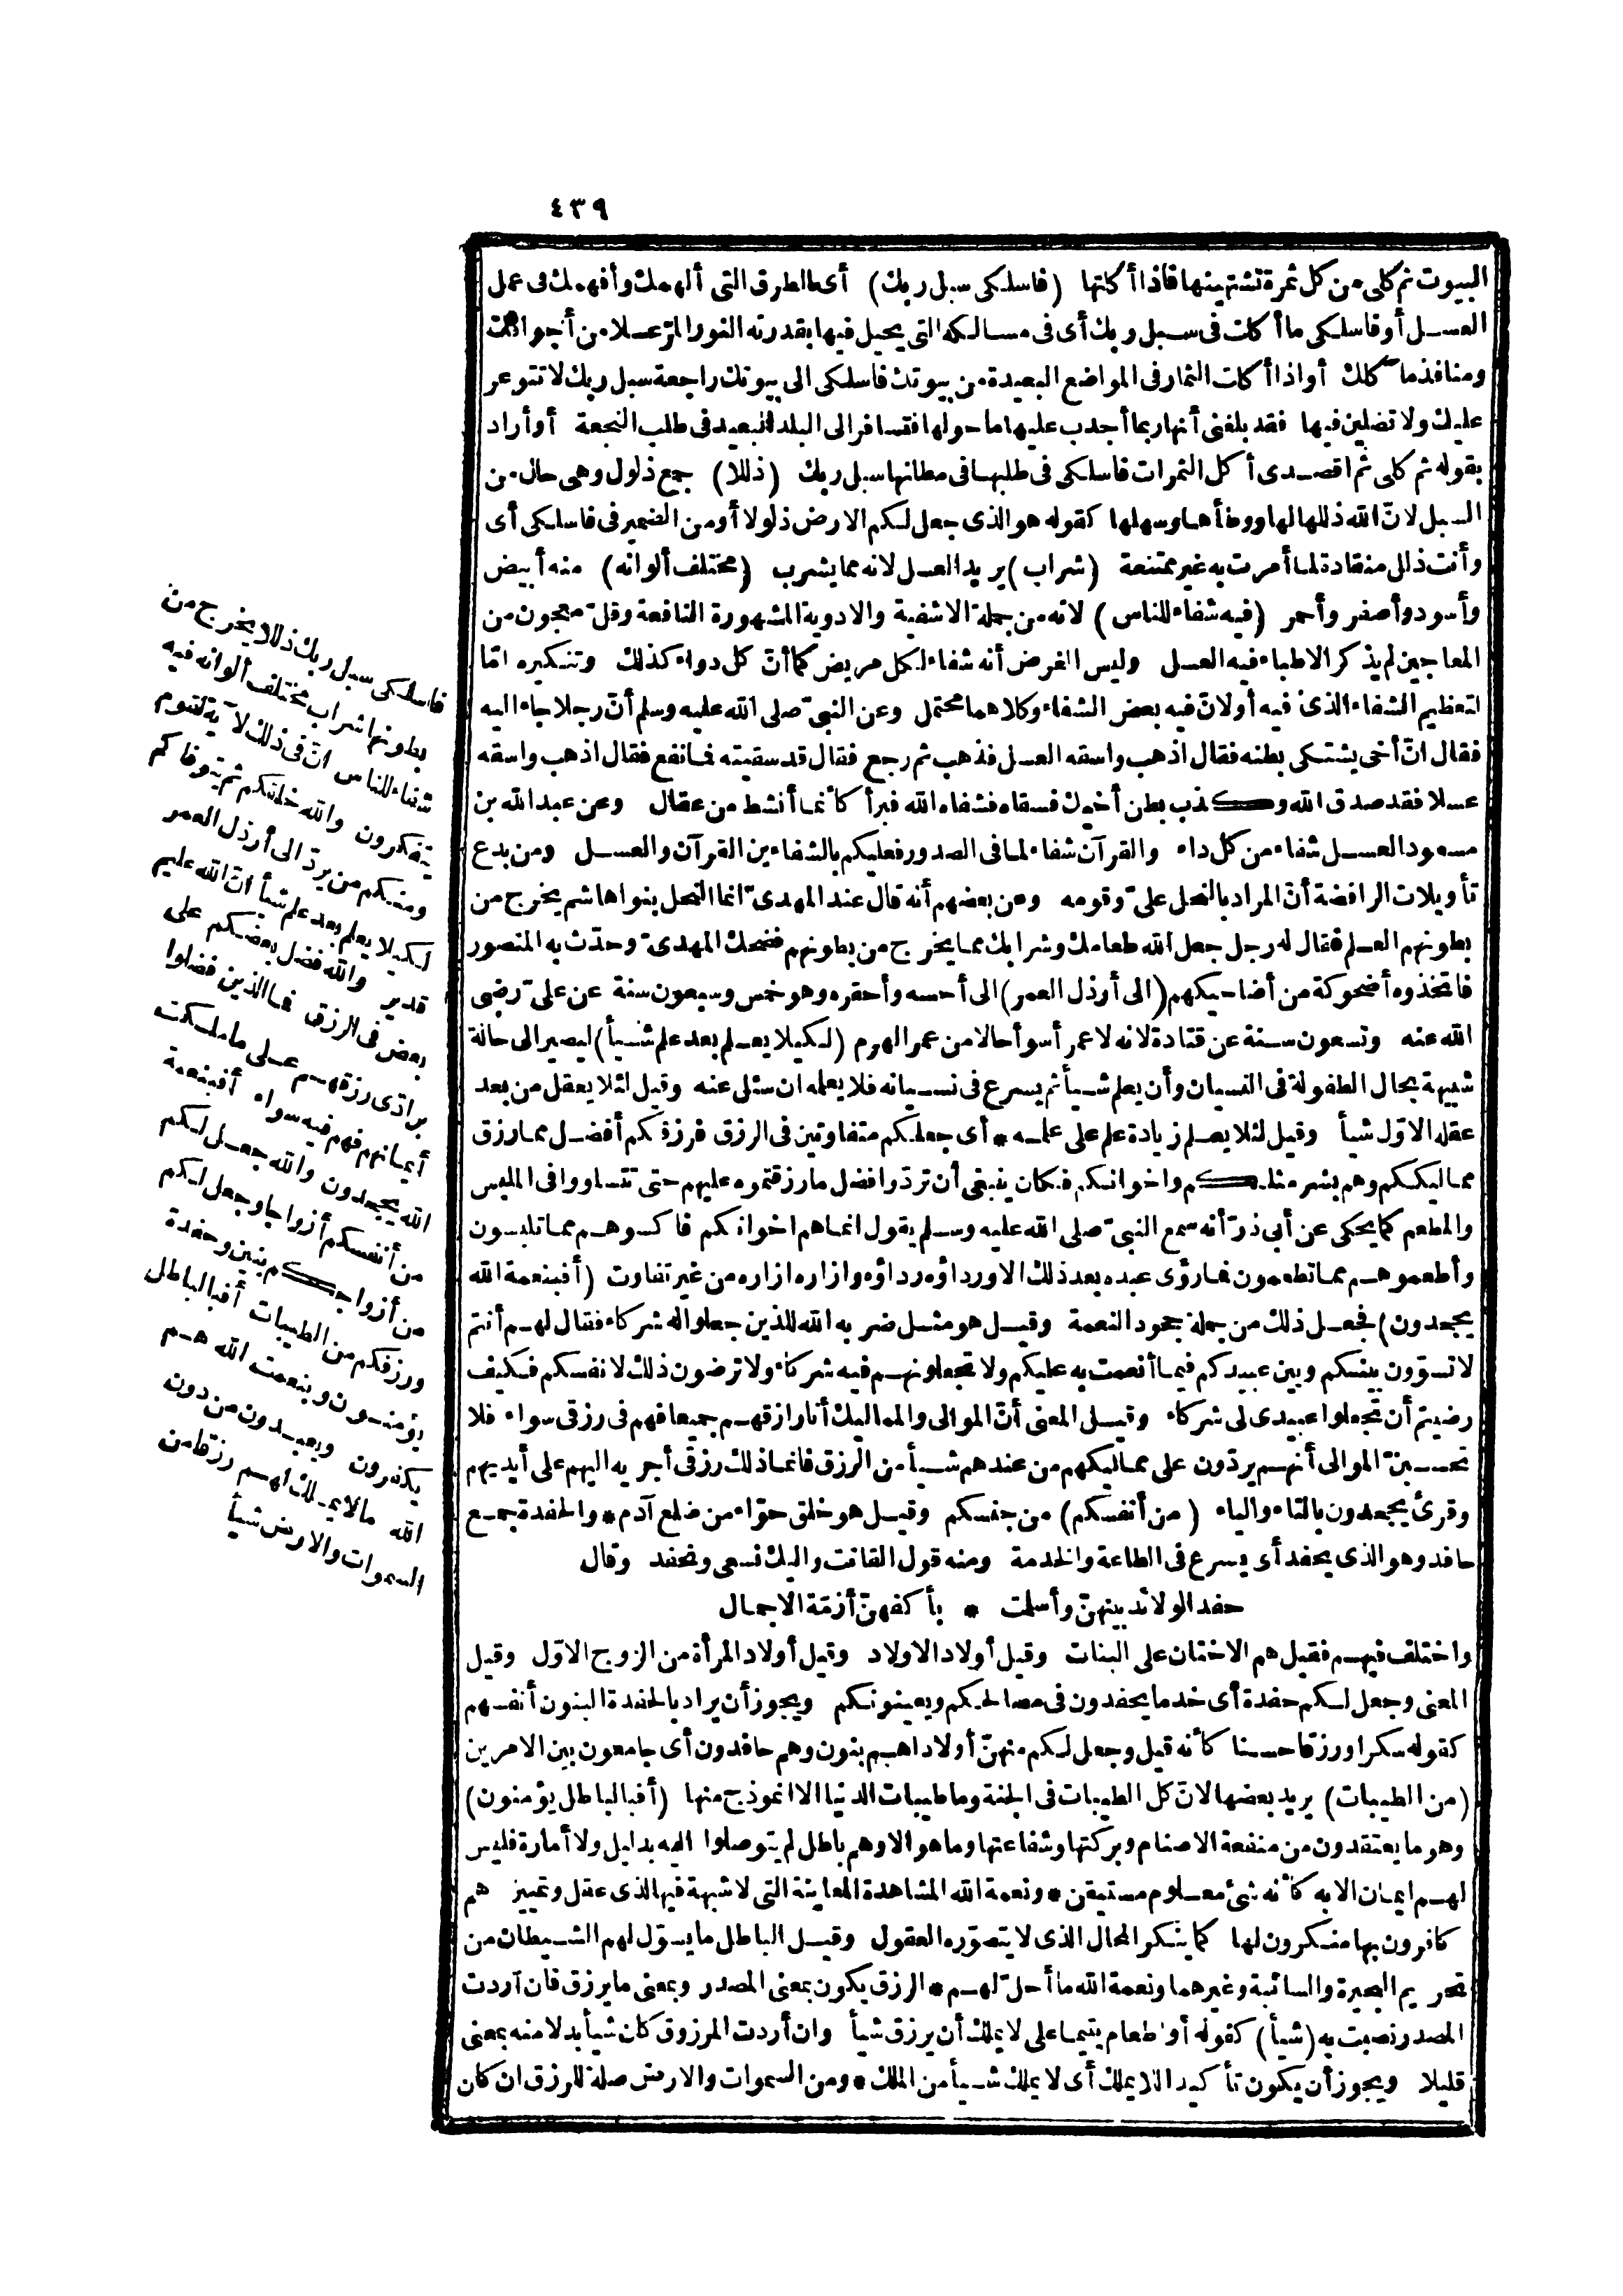 ٤٣٩
البيوت ثم كلى من كل ثمرة تشتهينها فاذا أكلتها (فاسلكى سبل ربك) أى الطرق التى ألهمك وأفهمك فى عمل
العسل أو فاسلكى ما أكلت فى سبل ربك أى فى مسالكه التى يحيل فيها بقدرته النور المرّ عسلا من أجوافك
ومنافذ مآكلك أو اذا أكلت الثمار فى المواضع البعيدة من بيوتك فاسلكى الى بيوتك راجعة سبل ربك لا تتوعر
عليك ولا تضلين فيها فقد بلغنى أنها ربما أجدب عليها ما حولها فتسافر الى البلد البعيد فى طلب النجعة أو أراد
بقوله ثم كلى ثم اقصدى أكل الثمرات فاسلكى فى طلبها فى مظانها سبل ربك (ذللا) جمع ذلول وهى حال من
السبل لانّ الله ذللها لها ووطأها وسهلها كقوله هو الذى جعل لكم الارض ذلولا أو من الضمير فى فاسلكى أى
وأنت ذلل منقادة لما أمرت به غير ممتنعة (شراب) يريد العسل لانه مما يشرب (مختلف ألوانه) منه أبيض
وأسود وأصفر وأحمر (فيه شفاء للناس) لانه من جملة الاشفية والادوية المشهورة النافعة وقلّ معجون من
المعاجين لم يذكر الاطباء فيه العسل وليس الغرض أنه شفاء لكل مريض كما أنّ كل دواء كذلك وتنكيره امّا
لتعظيم الشفاء الذى فيه أو لانّ فيه بعض الشفاء وكلاهما محتمل وعن النبىّ صلى الله عليه وسلم أنّ رجلا جاء اليه
فقال انّ أخى يشتكى بطنه فقال اذهب واسقه العسل فذهب ثم رجع فقال قد سقيته فما نفع فقال اذهب واسقه
عسلا فقد صدق الله وكذب بطن أخيك فسقاه فشفاه الله فبرأ كأنما أنشط من عقال وعن عبد الله بن
مسعود العسل شفاء من كل داء والقرآن شفاء لما فى الصدور فعليكم بالشفاءين القرآن والعسل ومن بدع
تأويلات الرافضة أنّ المراد بالنحل علىّ وقومه وعن بعضهم أنه قال عند المهدىّ انما النحل بنو هاشم يخرج من
بطونهم العلم فقال له رجل جعل الله طعامك وشرابك مما يخرج من بطونهم فضحك المهدىّ وحدّث به المنصور
فاتخذوه أضحوكة من أضاحيكهم (الى أرذل العمر) الى أخسه وأحقره وهو خمس وسبعون سنة عن علىّ رضى
الله عنه وتسعون سنة عن قتادة لانه لا عمر أسوأ حالا من عمر الهرم (لكيلا يعلم بعد علم شيأ) ليصير الى حالة
شبيهة بحال الطفولة فى النسيان وأن يعلم شيأ ثم يسرع فى نسيانه فلا يعلمه ان سئل عنه وقيل لئلا يعقل من بعد
عقله الاوّل شيأ وقيل لئلا يعلم زيادة علم على علمه * أى جعلكم متفاوتين فى الرزق فرزقكم أفضل مما رزق
مماليككم وهم بشر مثلكم واخوانكم فكان ينبغى أن تردّوا فضل ما رزقتموه عليهم حتى تتساووا فى الملبس
والمطعم كما يحكى عن أبى ذرّ أنه سمع النبىّ صلى الله عليه وسلم يقول انما هم اخوانكم فاكسوهم مما تلبسون
وأطعموهم مما تطعمون فما رؤى عبده بعد ذلك الا ورداؤه رداؤه وازاره ازاره من غير تفاوت (أفبنعمة الله
يجحدون) فجعل ذلك من جملة جحود النعمة وقيل هو مثل ضربه الله للذين جعلوا له شركاء فقال لهم أنتم
لا تسوّون بينكم وبين عبيدكم فيما أنعمت به عليكم ولا تجعلونهم فيه شركاء ولا ترضون ذلك لانفسكم فكيف
رضيتم أن تجعلوا عبيدى لى شركاء وقيل المعنى أنّ الموالى والمماليك أنا رازقهم جميعا فهم فى رزقى سواء فلا
تحسبنّ الموالى أنهم يردّون على مماليكهم من عندهم شيأ من الرزق فانما ذلك رزقى أجريه اليهم على أيديهم
وقرئ يجحدون بالتاء والياء (من أنفسكم) من جنسكم وقيل هو خلق حوّاء من ضلع آدم * والحفدة جمع
حافد وهو الذى يحفد أى يسرع فى الطاعة والخدمة ومنه قول القانت واليك نسعى ونحفد وقال
حفد الولائد بينهنّ وأسلمت * بأكفهنّ أزمّة الاجمال
واختلف فيهم فقيل هم الاختان على البنات وقيل أولاد الاولاد وقيل أولاد المرأة من الزوج الاوّل وقيل
المعنى وجعل لكم حفدة أى خدما يحفدون فى مصالحكم ويعينونكم ويجوز أن يراد بالحفدة البنون أنفسهم
كقوله سكرا ورزقا حسنا كأنه قيل وجعل لكم منهنّ أولادا هم بنون وهم حافدون أى جامعون بين الامرين
(من الطيبات) يريد بعضها لانّ كل الطيبات فى الجنة وما طيبات الدنيا الا انموذج منها (أفبالباطل يؤمنون)
وهو ما يعتقدون من منفعة الاصنام وبركتها وشفاعتها وما هو الا وهم باطل لم يتوصلوا اليه بدليل ولا أمارة فليس
لهم ايمان الا به كأنه شئ معلوم مستيقن * ونعمة الله المشاهدة المعاينة التى لا شبهة فيها لذى عقل وتمييز هم
كافرون بها منكرون لها كما ينكر المحال الذى لا يتصوّره العقول وقيل الباطل ما يسوّل لهم الشيطان من
تحريم البحيرة والسائبة وغيرهما ونعمة الله ما أحلّ لهم * الرزق يكون بمعنى المصدر وبمعنى ما يرزق فان أردت
المصدر نصبت به (شيأ) كقوله أو اطعام يتيما على لا يملك أن يرزق شيأ وان أردت المرزوق كان شيأ بدلا منه بمعنى
قليلا ويجوز أن يكون تأكيد اللا يملك أى لا يملك شيأ من الملك * ومن السموات والارض صلة للرزق ان كان
فاسلكى سبل ربك ذللا يخرج من
بطونها شراب مختلف ألوانه فيه
شفاء للناس انّ فى ذلك لآية لقوم
يتفكرون والله خلقكم ثم يتوفاكم
ومنكم من يردّ الى أرذل العمر
لكيلا يعلم بعد علم شيأ انّ الله عليم
قدير والله فضل بعضكم على
بعض فى الرزق فما الذين فضلوا
برادّى رزقهم على ما ملكت
أيمانهم فهم فيه سواء أفبنعمة
الله يجحدون والله جعل لكم
من أنفسكم أزواجا وجعل لكم
من أزواجكم بنين وحفدة
ورزقكم من الطيبات أفبالباطل
يؤمنون وبنعمت الله هم
يكفرون ويعبدون من دون
الله مالا يملك لهم رزقا من
السموات والارض شيأ